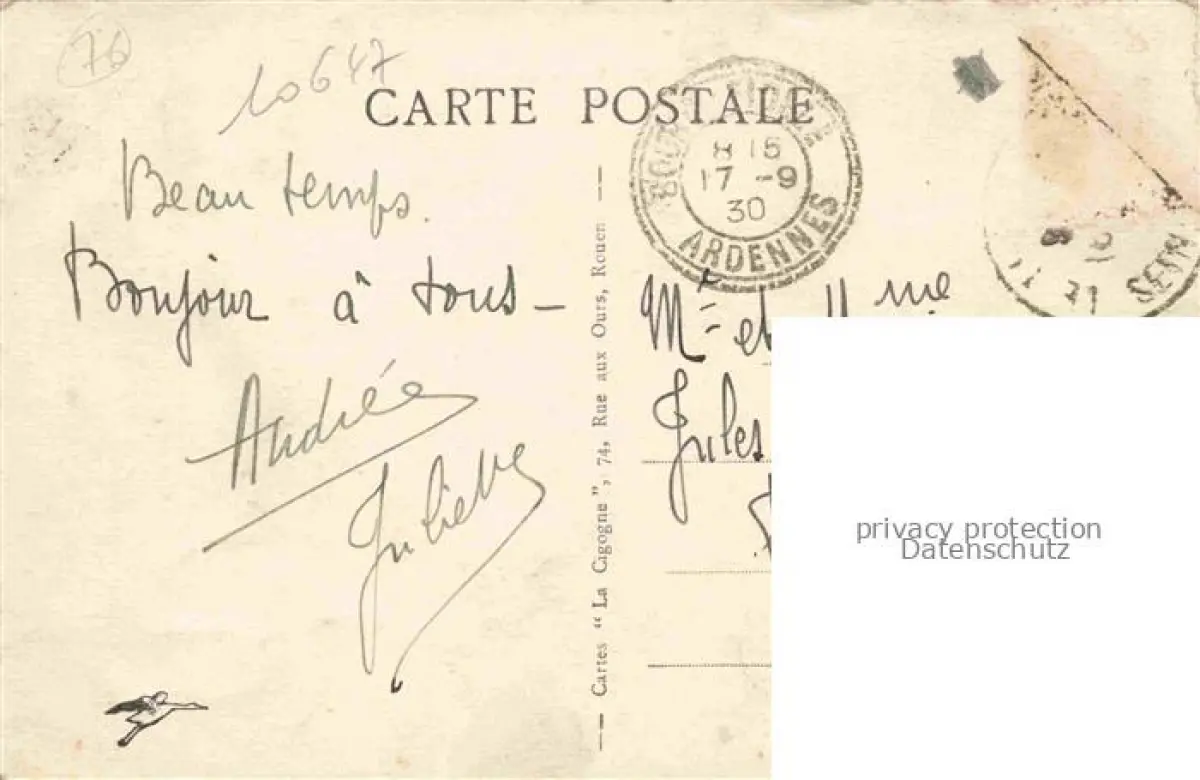 76
10647
CARTE POSTALE
Beau temps.
Bonjour à tous -
Andrée
Juliette
Cartes “La Cigogne”, 74, Rue aux Ours, Rouen
8 15
17 - 9
30
ARDENNES
SEIN
Mr et Mme
Jules
privacy protection
Datenschutz